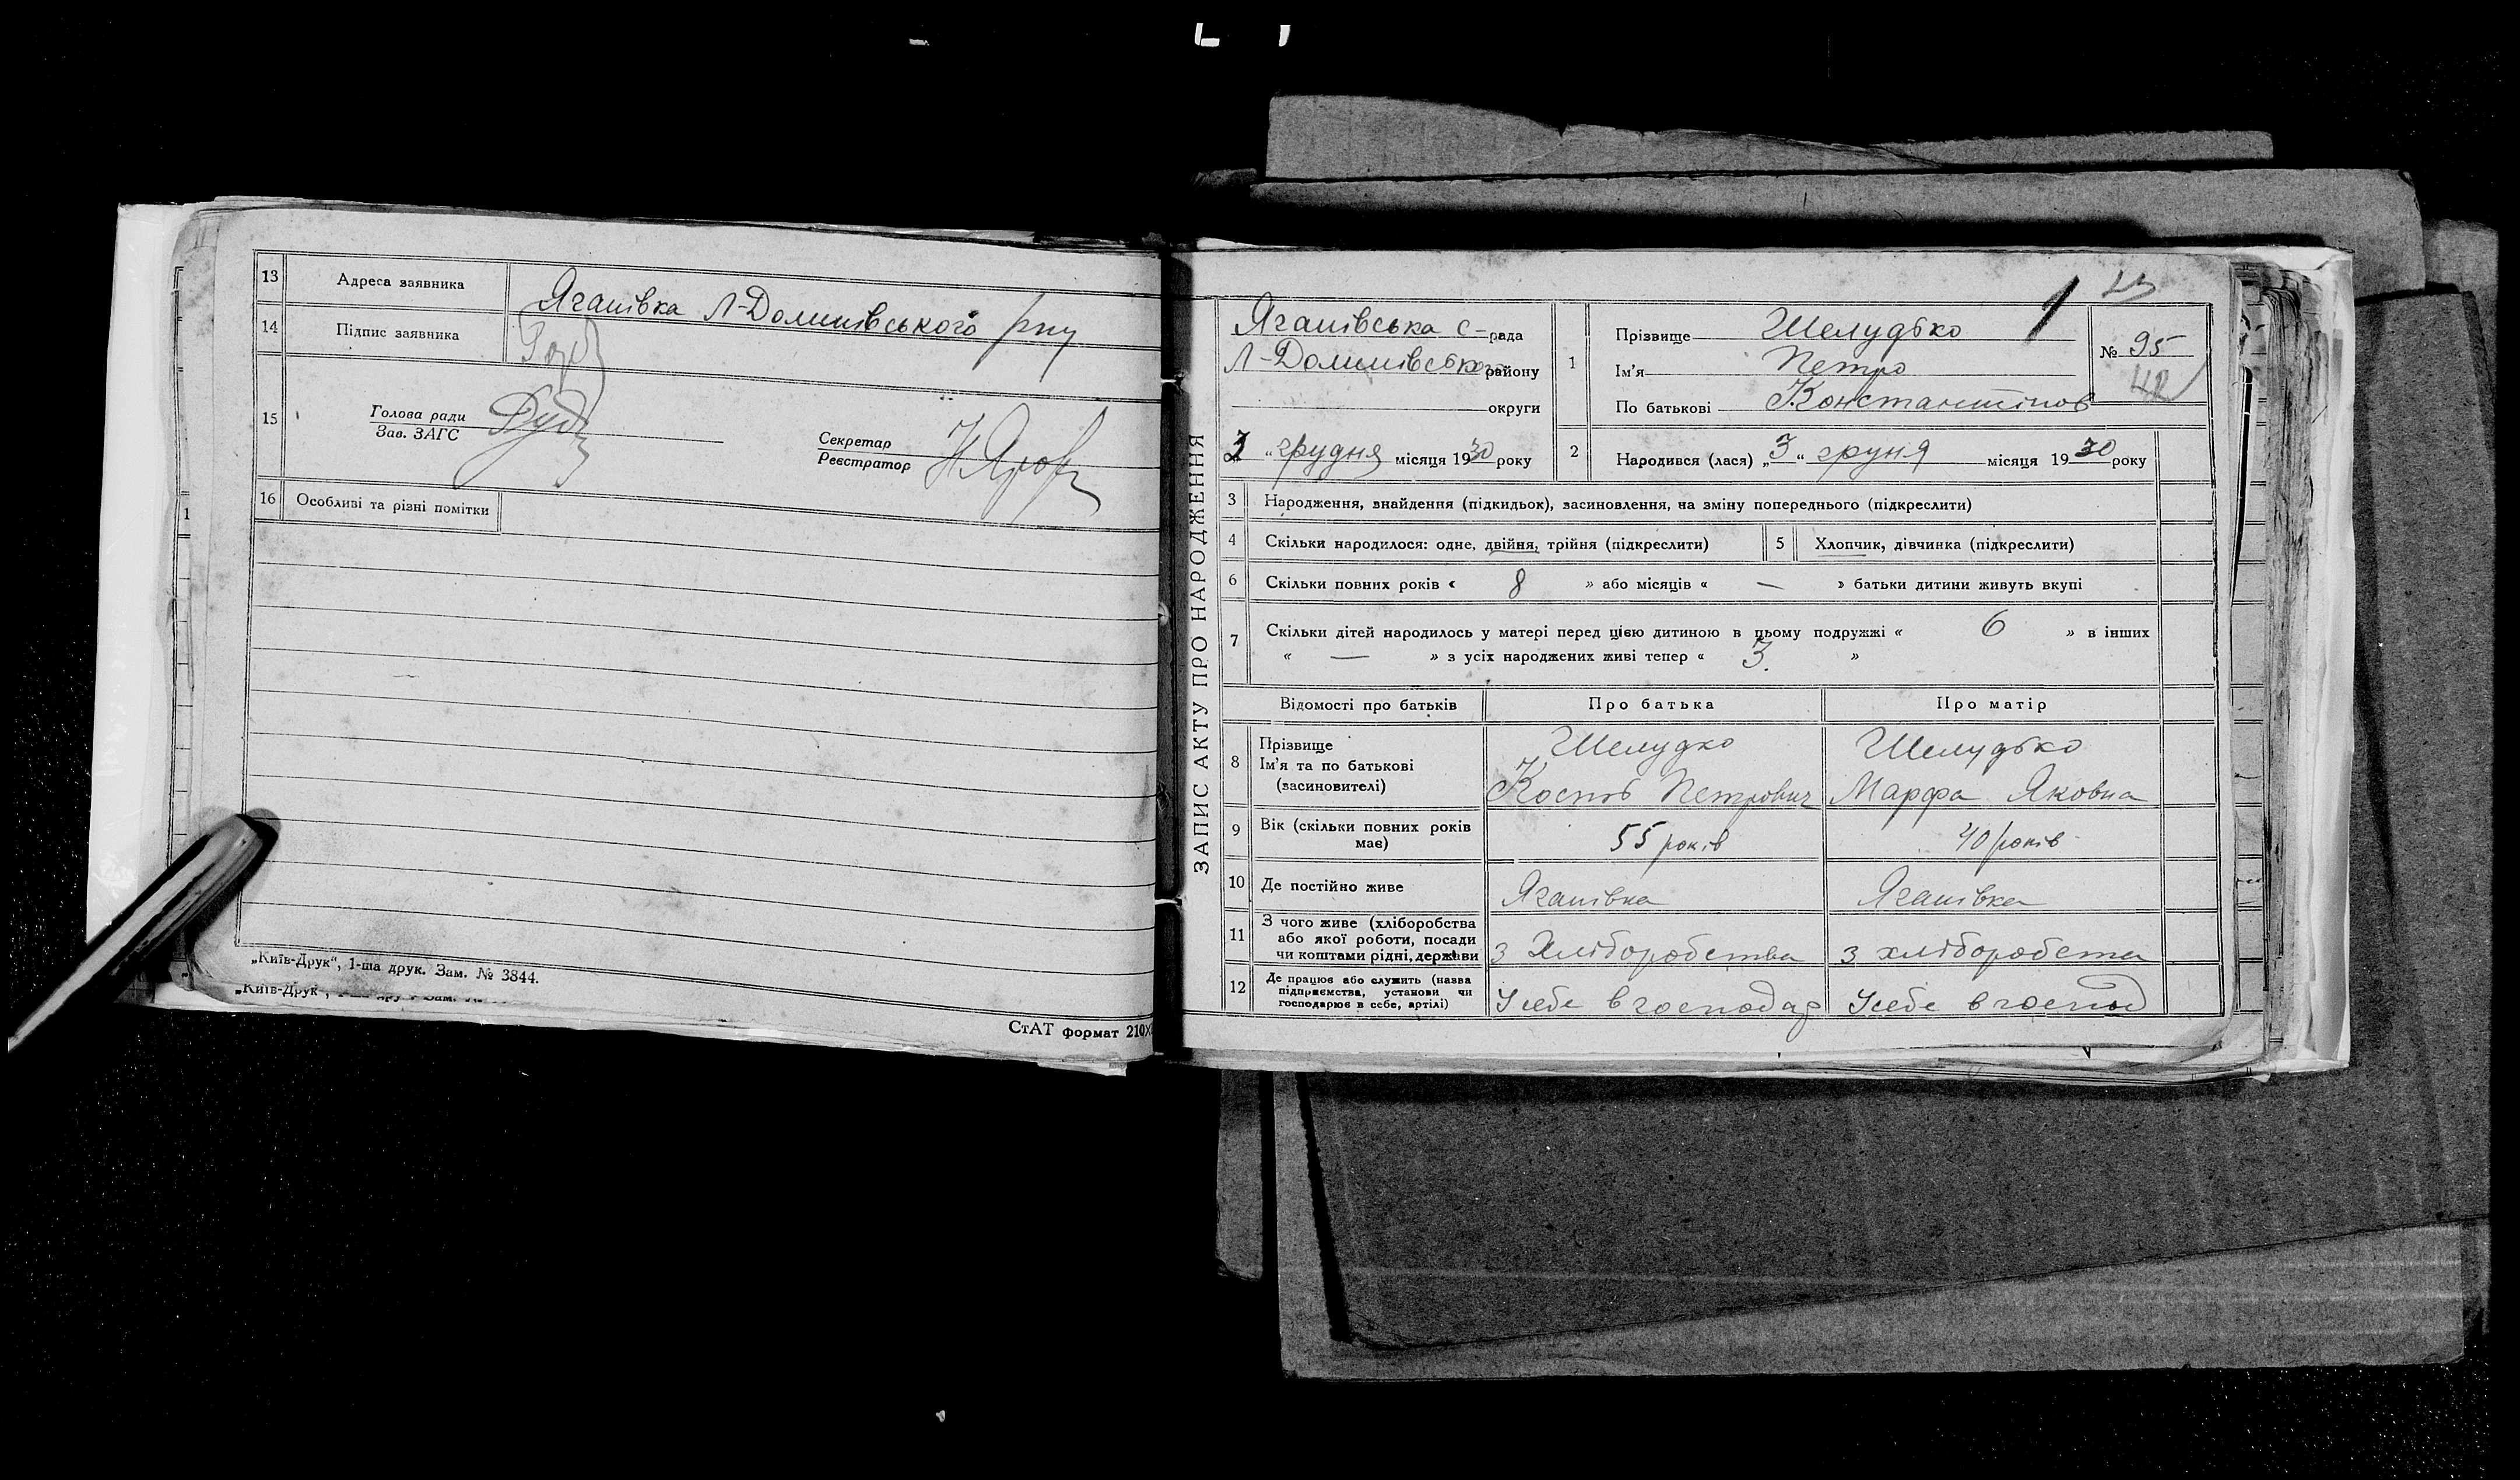 13 Адреса заявника Яганівка Л-Долинівського р-ну
14 Підпис заявника
15 Голова ради
Зав. ЗАГС
Секретар
Реєстратор
16 Особливі та різні помітки
„Київ-Друк“, 1-ша друк. Зам. № 3844.
„Київ-Друк“,
СтАТ формат 210
ЗАПИС АКТУ ПРО НАРОДЖЕННЯ
Яганівська с-рада
Л-Долинівського району
округи
3 „ грудня місяця 1930 року
1 Прізвище Шелудько
Ім'я Петро
По батькові Константінов
№ 95
42
2 Народився (лася) „3“ груня місяця 1930 року
3 Народження, знайдення (підкидьок), засиновлення, на зміну попереднього (підкреслити)
4 Скільки народилося: одне, двійня, трійня (підкреслити) 5 Хлопчик, дівчинка (підкреслити)
6 Скільки повних років « 8 » або місяців « — » батьки дитини живуть вкупі
7 Скільки дітей народилось у матері перед цією дитиною в цьому подружжі « 6 » в інших
« — » з усіх народжених живі тепер « 3. »
Відомості про батьків Про батька Про матір
8 Прізвище Шелудко Шелудько
Ім'я та по батькові Кость Петрович Марфа Яковна
(засиновителі)
9 Вік (скільки повних років має) 55 років 40 років
10 Де постійно живе Яганівка Яганівка
11 З чого живе (хліборобства
або якої роботи, посади
чи коштами рідні, держави з хліборобства з хліборобства
12 Де працює або служить (назва
підприємства, установи чи
господарює в себе, артілі) У себе в господар У себе в господ